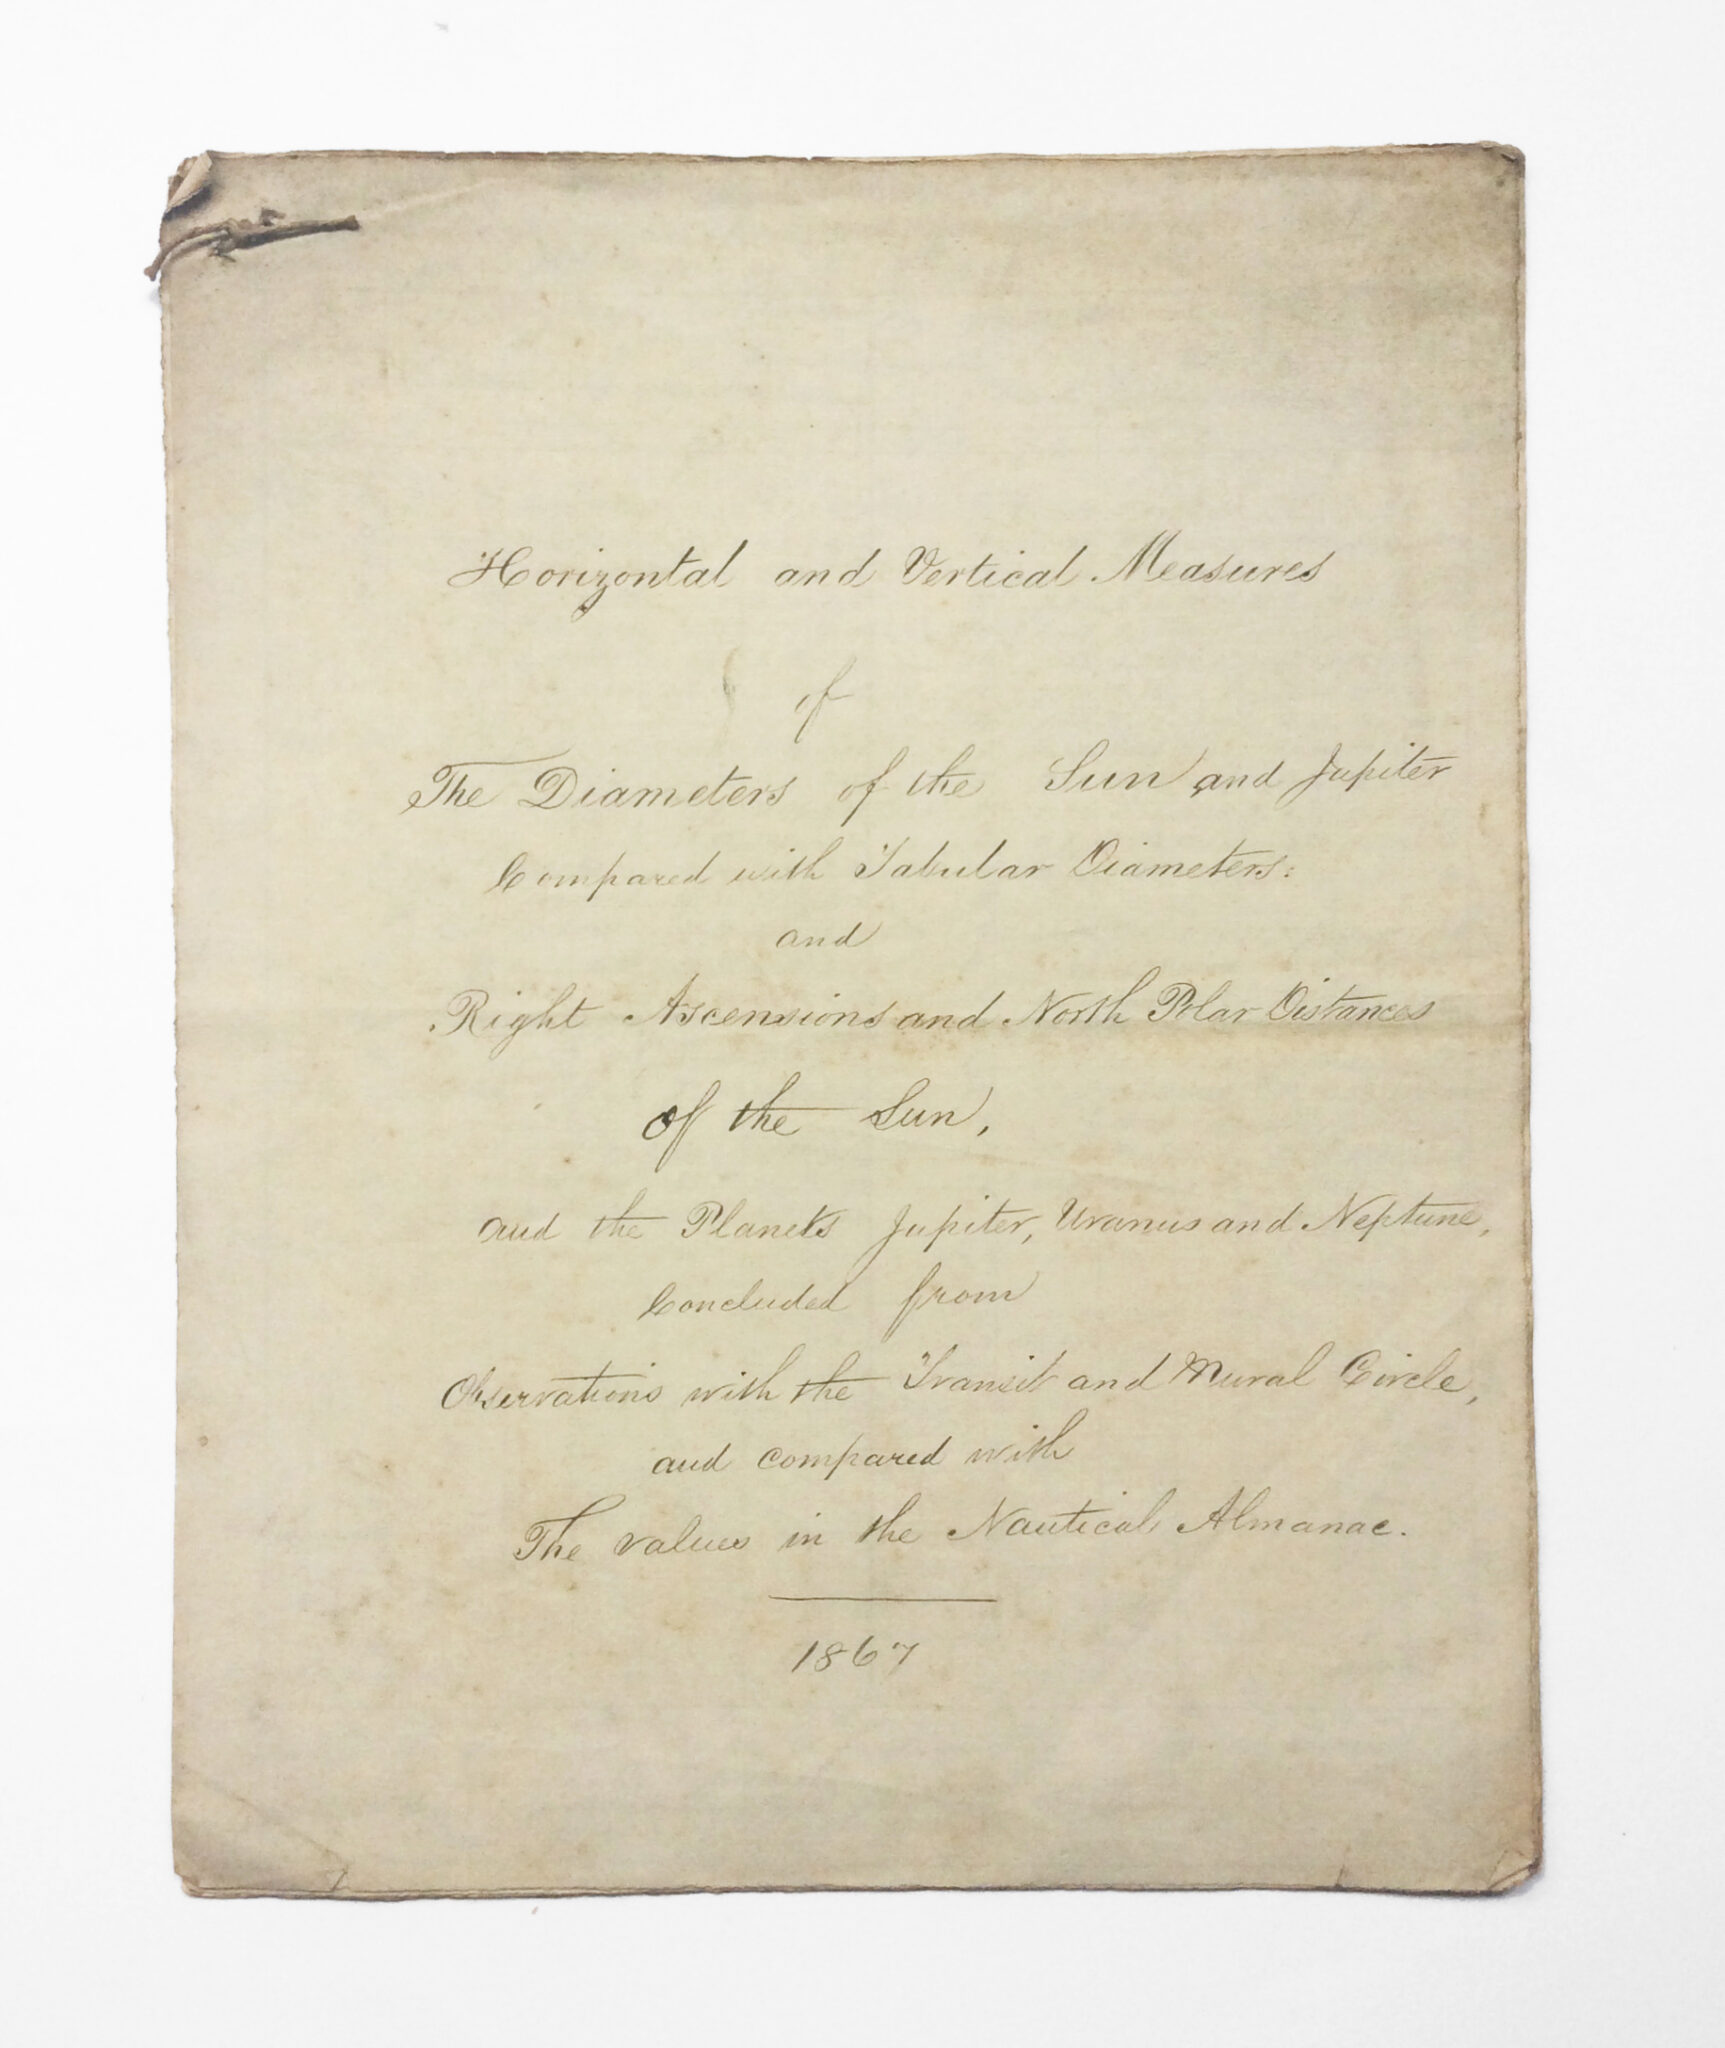 Horizontal and Vertical Measures
of
The Diameters of the Sun and Jupiter
Compared with Tabular Diameters:
and
Right Ascensions and North Polar Distances
of the Sun,
and the Planets Jupiter, Uranus and Neptune,
Concluded from
Observations with the Transit and Mural Circle,
and compared with
The values in the Nautical Almanac.
1867